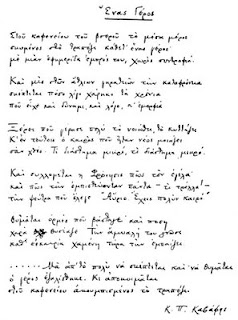 Ένας Γέρος
Στου καφενείου του βοερού το μέσα μέρος
σκυμένος στο τραπέζι κάθετ' ένας γέρος·
με μιαν εφημερίδα εμπρός του, χωρίς συντροφιά.
Και μες στων άθλιων γηρατειών την καταφρόνια
σκέπτεται πόσο λίγο χάρηκε τα χρόνια
που είχε και δύναμι, και λόγο, κ' εμορφιά.
Ξέρει που γέρασε πολύ· το νοιώθει, το κυττάζει.
Κ' εν τούτοις ο καιρός που ήταν νέος μοιάζει
σαν χθες. Τι διάστημα μικρό, τι διάστημα μικρό.
Και συλλογιέται η Φρόνησις πώς τον εγέλα·
και πώς την εμπιστεύονταν πάντα — τι τρέλλα! —
την ψεύτρα που έλεγε· «Αύριο. Έχεις πολύν καιρό.»
Θυμάται ορμές που βάσταγε· και πόση
χαρά θυσίαζε. Την άμυαλή του γνώσι
κάθ' ευκαιρία χαμένη τώρα την εμπαίζει.
...... Μα απ' το πολύ να σκέπτεται και να θυμάται
ο γέρος εζαλίσθηκε. Κι αποκοιμάται
στου καφενείου ακουμπισμένος το τραπέζι.
Κ. Π. Καβάφης